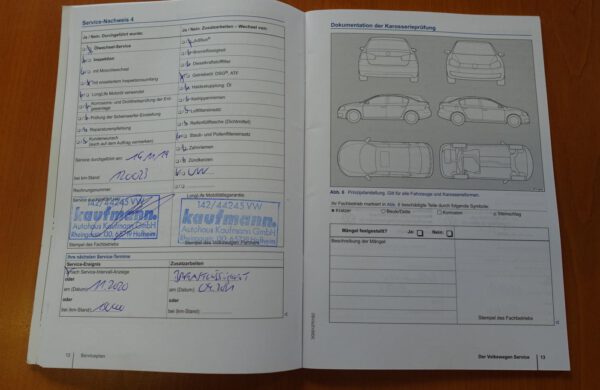 Service-Nachweis 4
Ja / Nein: Durchgeführt wurde:
Ölwechsel-Service
Inspektion
mit Motorölwechsel
mit erweitertem Inspektionsumfang
LongLife Motoröl verwendet
Prüfung der Scheinwerfer-Einstellung
Reparaturempfehlung
Kundenwunsch
(auch auf dem Auftrag vermerken)
Service durchgeführt am:
bei km-Stand:
Rechnungsnummer:
Ja / Nein: Zusatzarbeiten – Wechsel von:
AdBlue®
Bremsflüssigkeit
Dieselkraftstofffilter
Getriebeöl: DSG®, ATF
Haldexkupplung: Öl
Keilrippenriemen
Luftfiltereinsatz
Reifenfüllflasche (Dichtmittel)
Staub- und Pollenfiltereinsatz
Zahnriemen
Zündkerzen
LongLife Mobilitätsgarantie
142/44245 VW
kaufmann.
Autohaus Kaufmann GmbH
Stempel des Fachbetriebs
142/44245 VW
kaufmann.
Autohaus Kaufmann GmbH
Stempel des Volkswagen Partners
Ihre nächsten Service-Termine
Service-Ereignis
nach Service-Intervall-Anzeige
oder
am (Datum): 11.2020
oder
bei (km-Stand):
Zusatzarbeiten
am (Datum):
oder
bei (km-Stand):
12 Serviceplan
Dokumentation der Karosserieprüfung
Abb. 6 Prinzipdarstellung. Gilt für alle Fahrzeuge und Karosserieformen.
Ihr Fachbetrieb markiert in Abb. 6 beschädigte Teile durch folgende Symbole:
Kratzer Beule/Delle Korrosion Steinschlag
Mängel festgestellt? Ja Nein:
Beschreibung der Mängel
Stempel des Fachbetriebs
Der Volkswagen Service 13